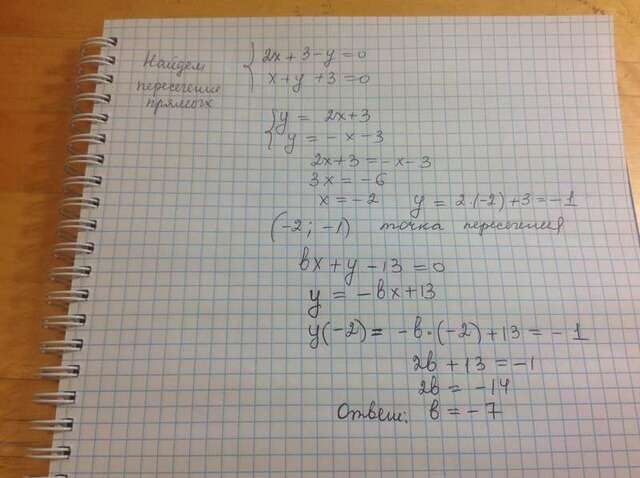 Найдем
пересечение
прямых
{ 2x + 3 - y = 0
x + y + 3 = 0
{ y = 2x + 3
y = - x - 3
2x + 3 = - x - 3
3x = - 6
x = - 2 y = 2 · (-2) + 3 = - 1
(-2; -1) точка пересечения
вx + y - 13 = 0
y = - вx + 13
y(-2) = - в · (-2) + 13 = - 1
2в + 13 = -1
2в = - 14
Ответ: в = - 7